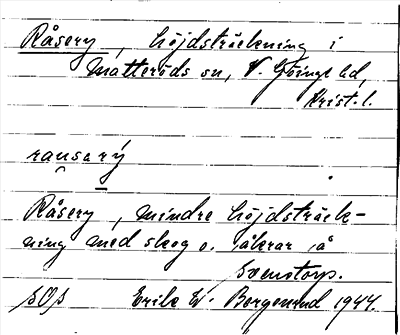 Råsery, höjdsträckning i
Matteröds sn, V. Göinge hd,
Krist. l.
rausarý
Råsery, mindre höjdsträck-
ning med skog o. åkrar, å
Svenstorp.
SOS Erik W. Borgenrud 1944.